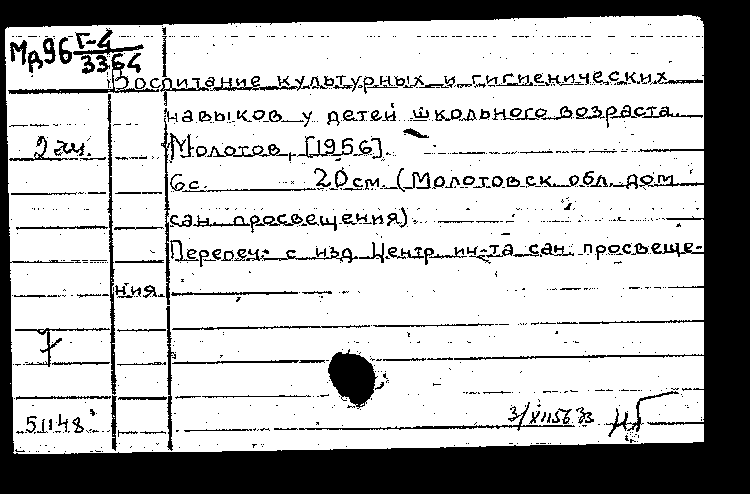 Мд96 Г-4
3364
Воспитание культурных и гигиенических
навыков у детей школьного возраста.
2 экз. Молотов, [1956].
6 с. 20 см. (Молотовск. обл. дом
сан. просвещения).
Перепеч. с изд. Центр. ин-та сан. просвеще-
ния.
51148